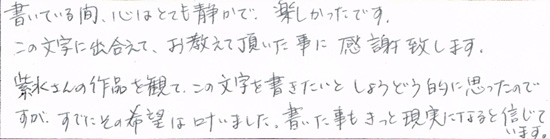 書いている間、心はとても静かで、楽しかったです。
この文字に出合えて、お教えて頂いた事に 感謝致します。
紫水さんの作品を観て、この文字を書きたいと しょうどう的に思ったので
すが、すでにその希望は叶いました。書いた事もきっと現実になると信じて
います。